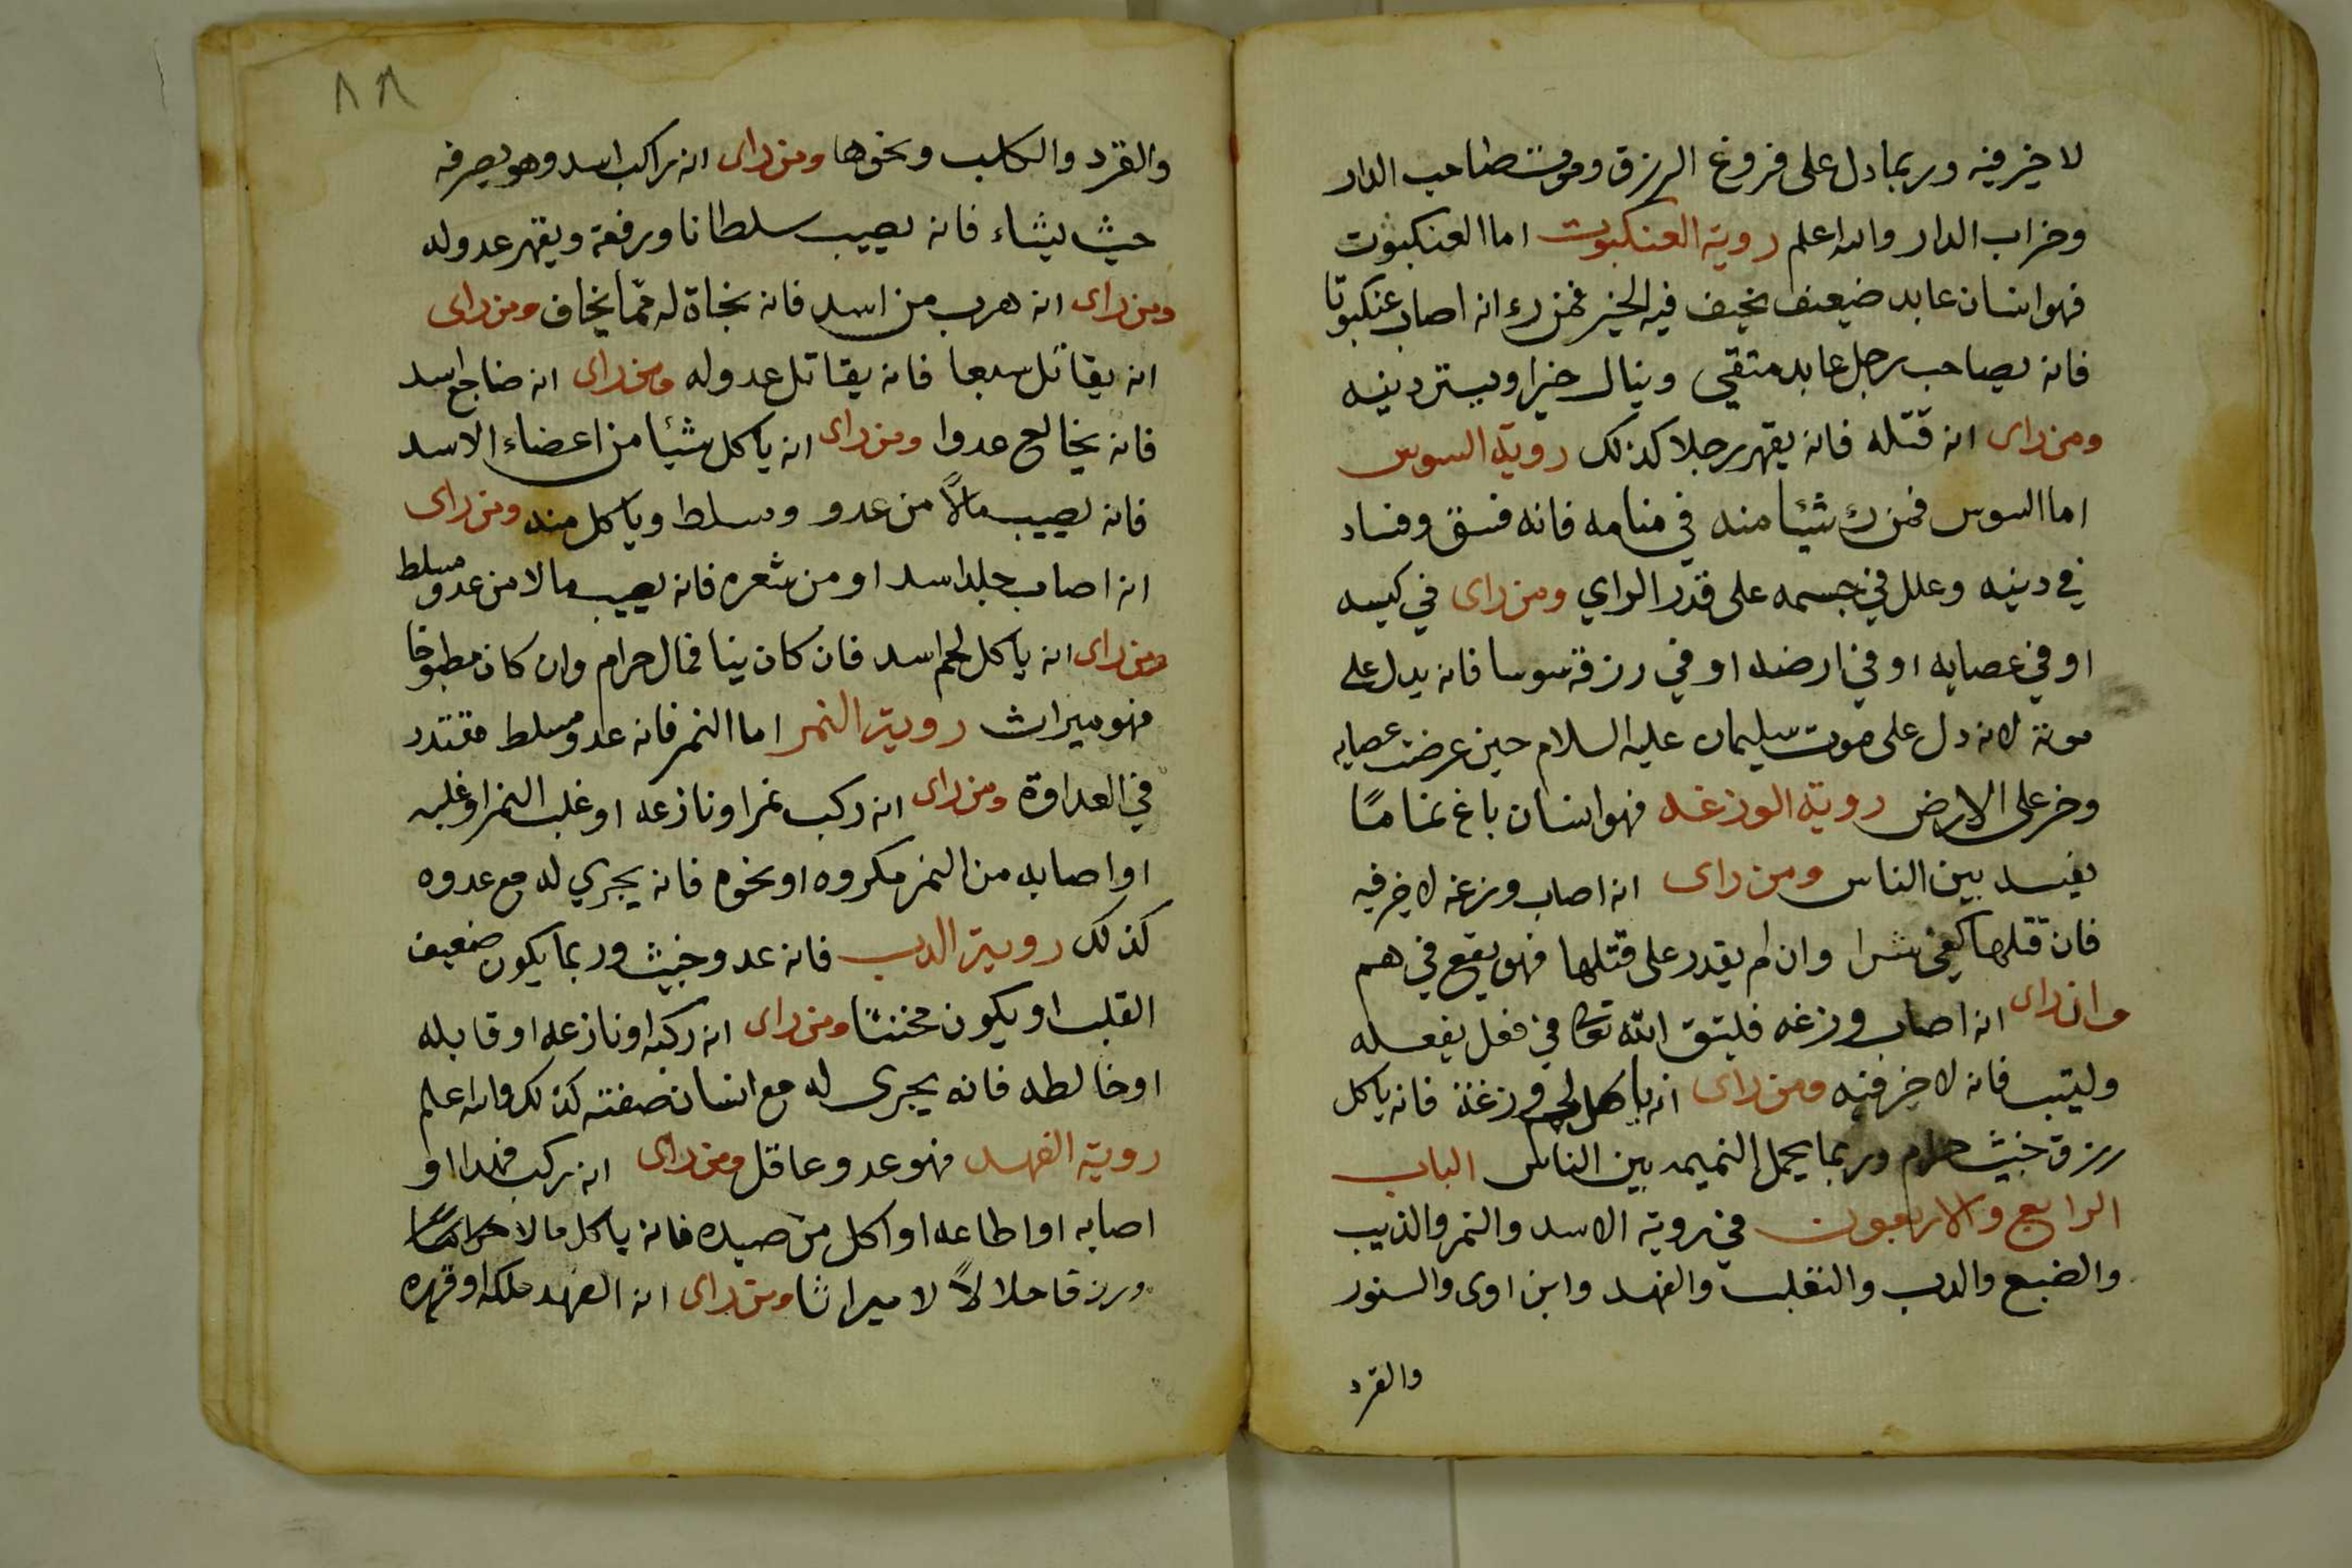 لا خير فيه وربما دل على فروغ الرزق وموت صاحب الدار
وخراب الدار والله اعلم روية العنكبوت اما العنكبوت
فهو انسان عابد ضيعف نحيف فيه الخير فمن رء انه اصاب عنكبوتا
فانه يصاحب رجل عابد متقي وينال خيرا ويستر دينه
ومن راى انه قتله فانه يقهر رجلا كذلك روية السوس
اما السوس فمن رء شيئا منه في منامه فانه فسق وفساد
في دينه وعلل في جسمه على قدر الراي ومن راى في كيسه
او في عصايه او في ارضه او في رزقه سوسا فانه يدل على
موته لانه دل على موت سليمان عليه السلام حين عرضت عصايه
وخر على الارض روية الوزغه فهو انسان باغ نماما
يفسد بين الناس ومن راى انه اصاب وزغه لا خير فيه
فان قتلها كفي شرا وان لم يقدر على قتلها فهو يقع في هم
وان راى انه اصاب وزغه فليتق الله تعالى في فعل يفعله
وليتب فانه لا خير فيه ومن راى انه ياكل لحم وزغة فانه ياكل
رزق خبيث حرام وربما يحمل النميمه بين الناس الباب
الرابع والاربعون في روية الاسد والنمر والذيب
والضبع والدب والثعلب والفهد وابن اوى والسنور
والقرد
٨٨
والقرد والكلب ونحوها ومن راى انه راكب اسد وهو يصرفه
حيث يشاء فانه يصيب سلطانا ورفعة ويقهر عدوله
ومن راى انه هرب من اسد فانه نجاة له مما يخاف ومن راى
انه يقاتل سبعا فانه يقاتل عدوله ومن راى انه ضاجع اسد
فانه يخالع عدوا ومن راى انه ياكل شيئا من اعضاء الاسد
فانه يصيب مالاً من عدو ومسلط وياكل منه ومن راى
انه اصاب جلد اسد او من شعره فانه يصيب مالا من عدو مسلط
ومن راى انه ياكل لحم اسد فان كان نيا فمال حرام وان كان مطبوخا
فهو ميراث روية النمر اما النمر فانه عدو مسلط مقتدر
في العداوة ومن راى انه ركب نمرا ونازعه او غلب النمر او غلبه
او اصابه من النمر مكروه او نحوه فانه يجري له مع عدوه
كذلك روية الدب فانه عدو خبيث وربما يكون ضعيف
القلب او يكون مخنثا ومن راى انه ركبه او نازعه او قابله
او خالطه فانه يجرى له مع انسان صفته كذلك والله اعلم
روية الفهد فهو عدو عاقل ومن راى انه ركب فهدا او
اصابه او اطاعه او اكل من صيده فانه ياكل مالا حراما
ورزقا حلالاً لا ميراثا ومن راى انه الفهد ملكه او قهره